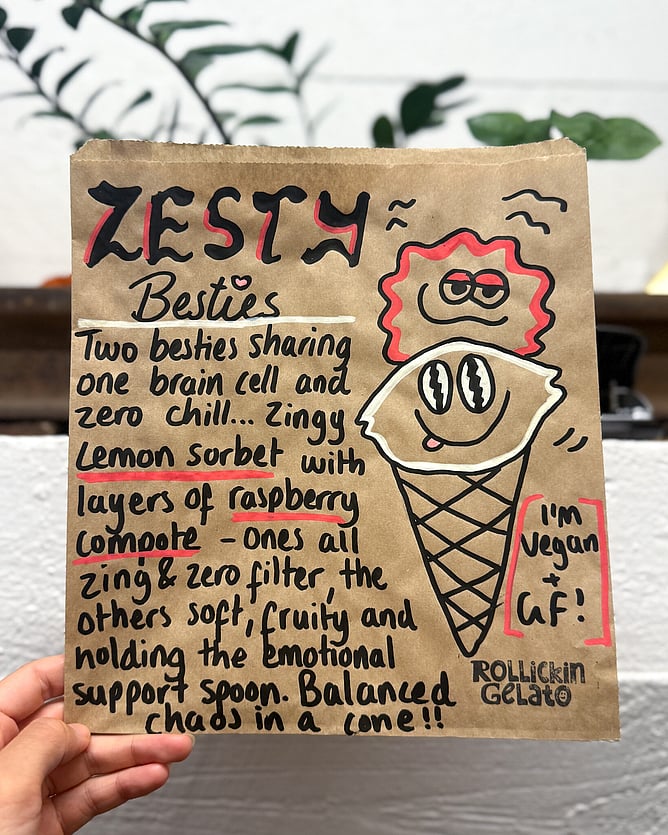 ZESTY
Besties
Two besties sharing
one brain cell and
zero chill... zingy
Lemon sorbet with
layers of raspberry
compote - ones all
zing & zero filter, the
others soft, fruity and
holding the emotional
support spoon. Balanced
chaos in a cone!!
I'm
vegan
+
GF!
ROLLICKIN
GELATO